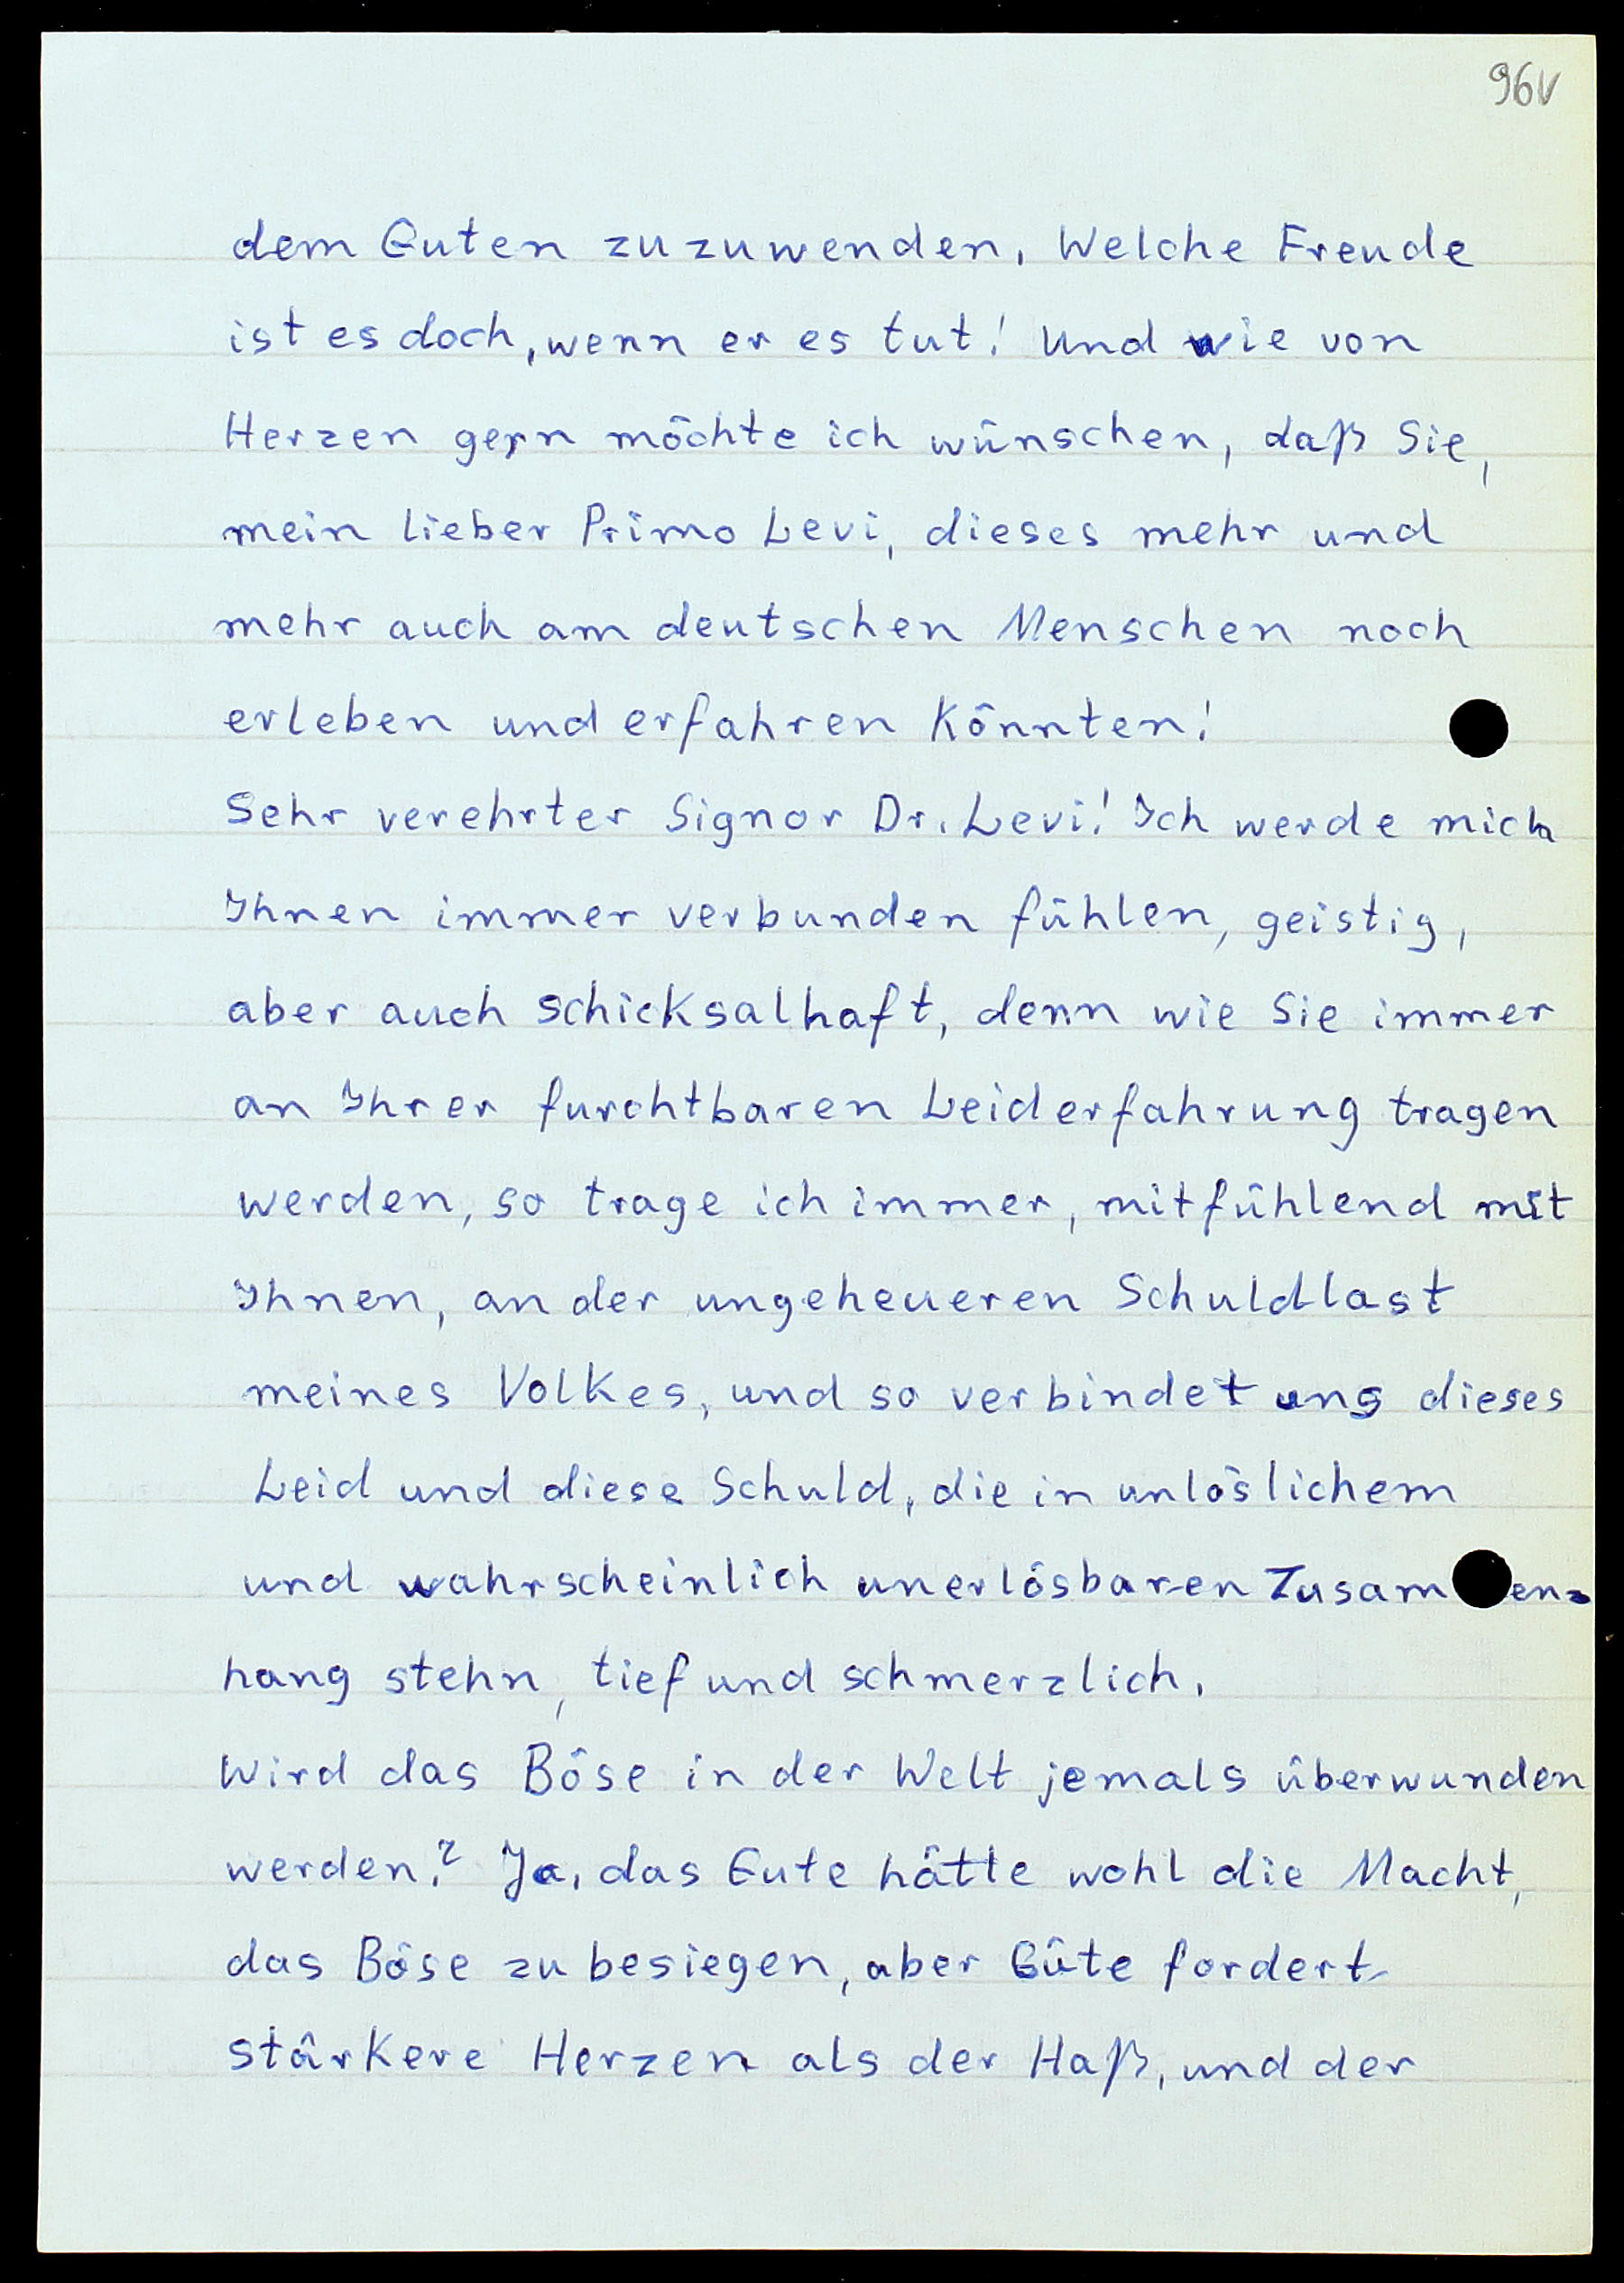 96v
dem Guten zuzuwenden. Welche Freude
ist es doch, wenn er es tut! Und wie von
Herzen gern möchte ich wünschen, daß Sie,
mein lieber Primo Levi, dieses mehr und
mehr auch am deutschen Menschen noch
erleben und erfahren könnten!
Sehr verehrter Signor Dr. Levi! Ich werde mich
Ihnen immer verbunden fühlen, geistig,
aber auch schicksalhaft, denn wie Sie immer
an Ihrer furchtbaren Leiderfahrung tragen
werden, so trage ich immer, mitfühlend mit
Ihnen, an der ungeheueren Schuldlast
meines Volkes, und so verbindet uns dieses
Leid und diese Schuld, die in unlöslichem
und wahrscheinlich unerlösbaren Zusammen-
hang stehn, tief und schmerzlich.
Wird das Böse in der Welt jemals überwunden
werden? Ja, das Gute hätte wohl die Macht,
das Böse zu besiegen, aber Güte fordert
stärkere Herzen als der Haß, und der